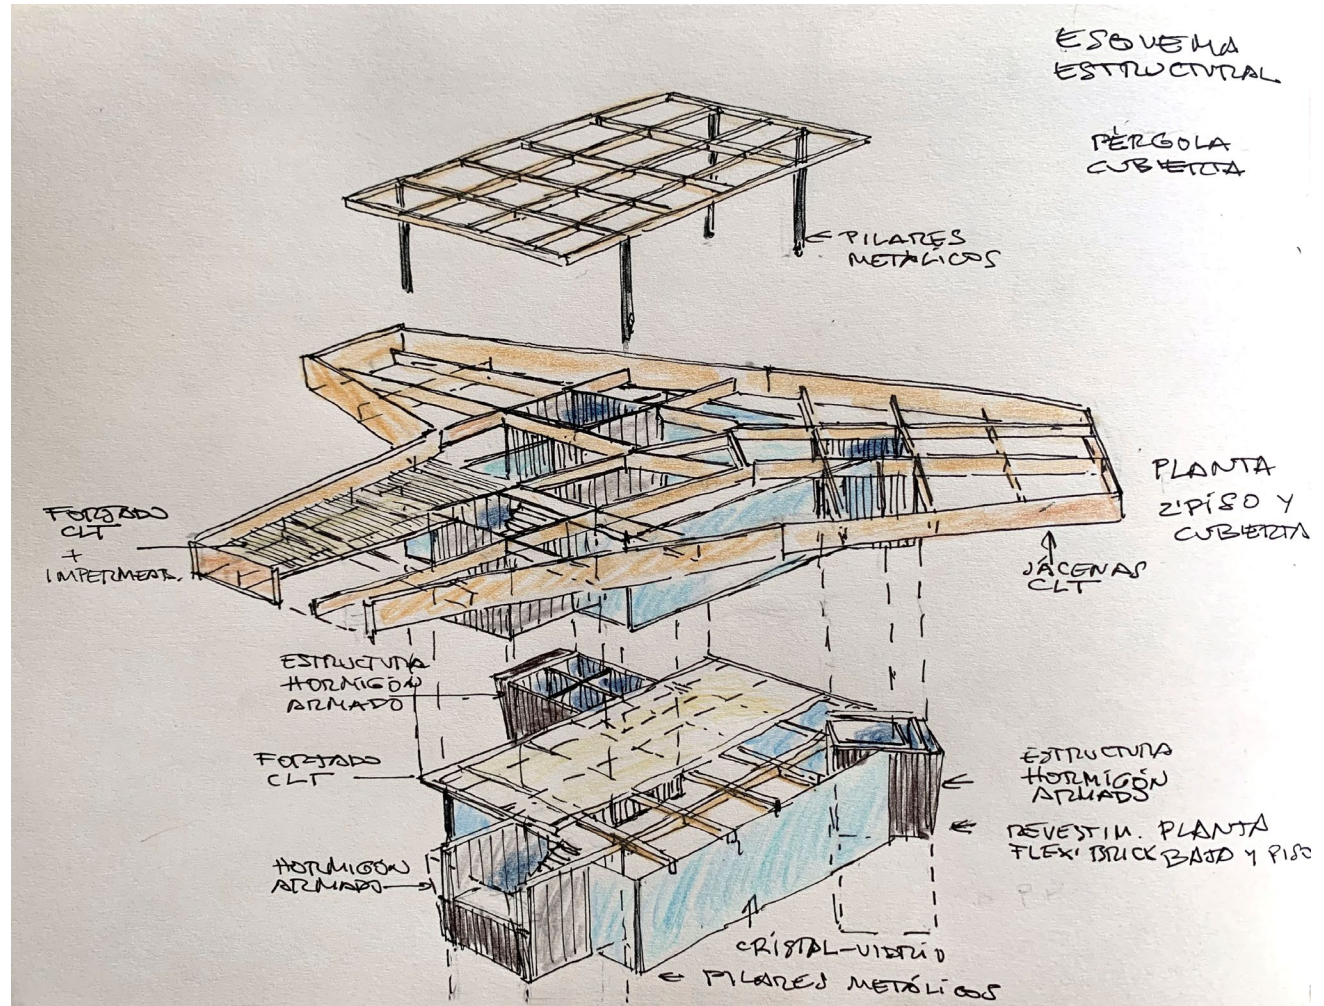 ESQUEMA
ESTRUCTURAL
PÈRGOLA
CUBIERTA
PILARES
METÁLICOS
PLANTA
2'PISO Y
CUBIERTA
FORJADO
CLT
+
IMPERMEAB.
JÁCENAS
CLT
ESTRUCTURA
HORMIGÓN
ARMADO
FORJADO
CLT
ESTRUCTURA
HORMIGÓN
ARMADO
REVESTIM. PLANTA
FLEXIBRICK BAJO Y PISO
HORMIGÓN
ARMADO
CRISTAL-VIDRIO
PILARES METÁLICOS